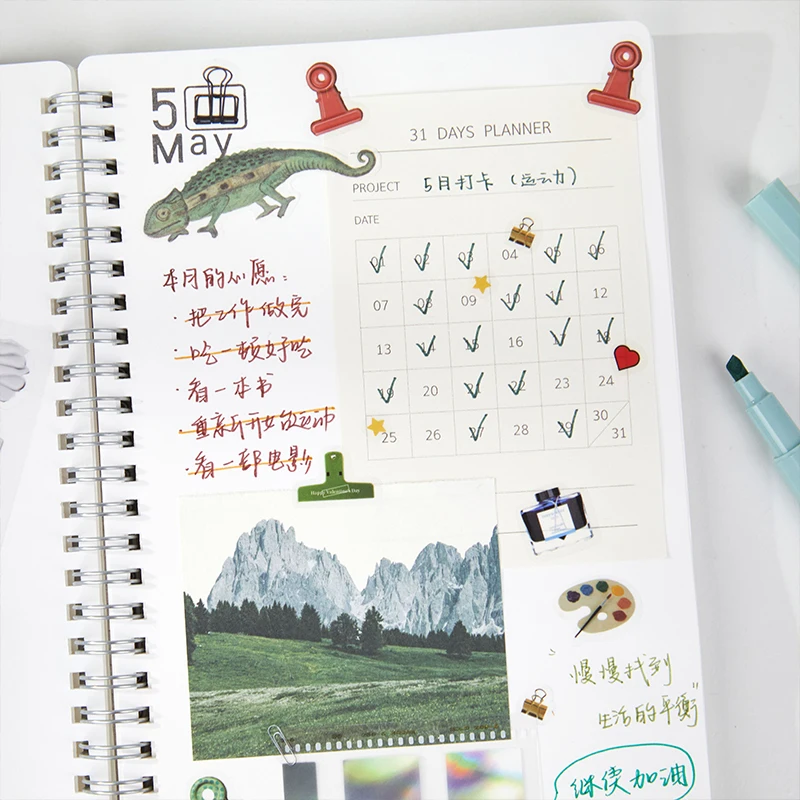 5
May
31 DAYS PLANNER
PROJECT 5月打卡（运动）
DATE
01 02 03 04 05 06
07 08 09 10 11 12
13 14 15 16 17 18
19 20 21 22 23 24
25 26 27 28 29 30 31
本月的心愿：
·把工作做完
·吃一顿好吃
·看一本书
·重新开始做运动
·看一部电影
Happy Valentine's Day
"慢慢找到
生活的平衡"
继续加油